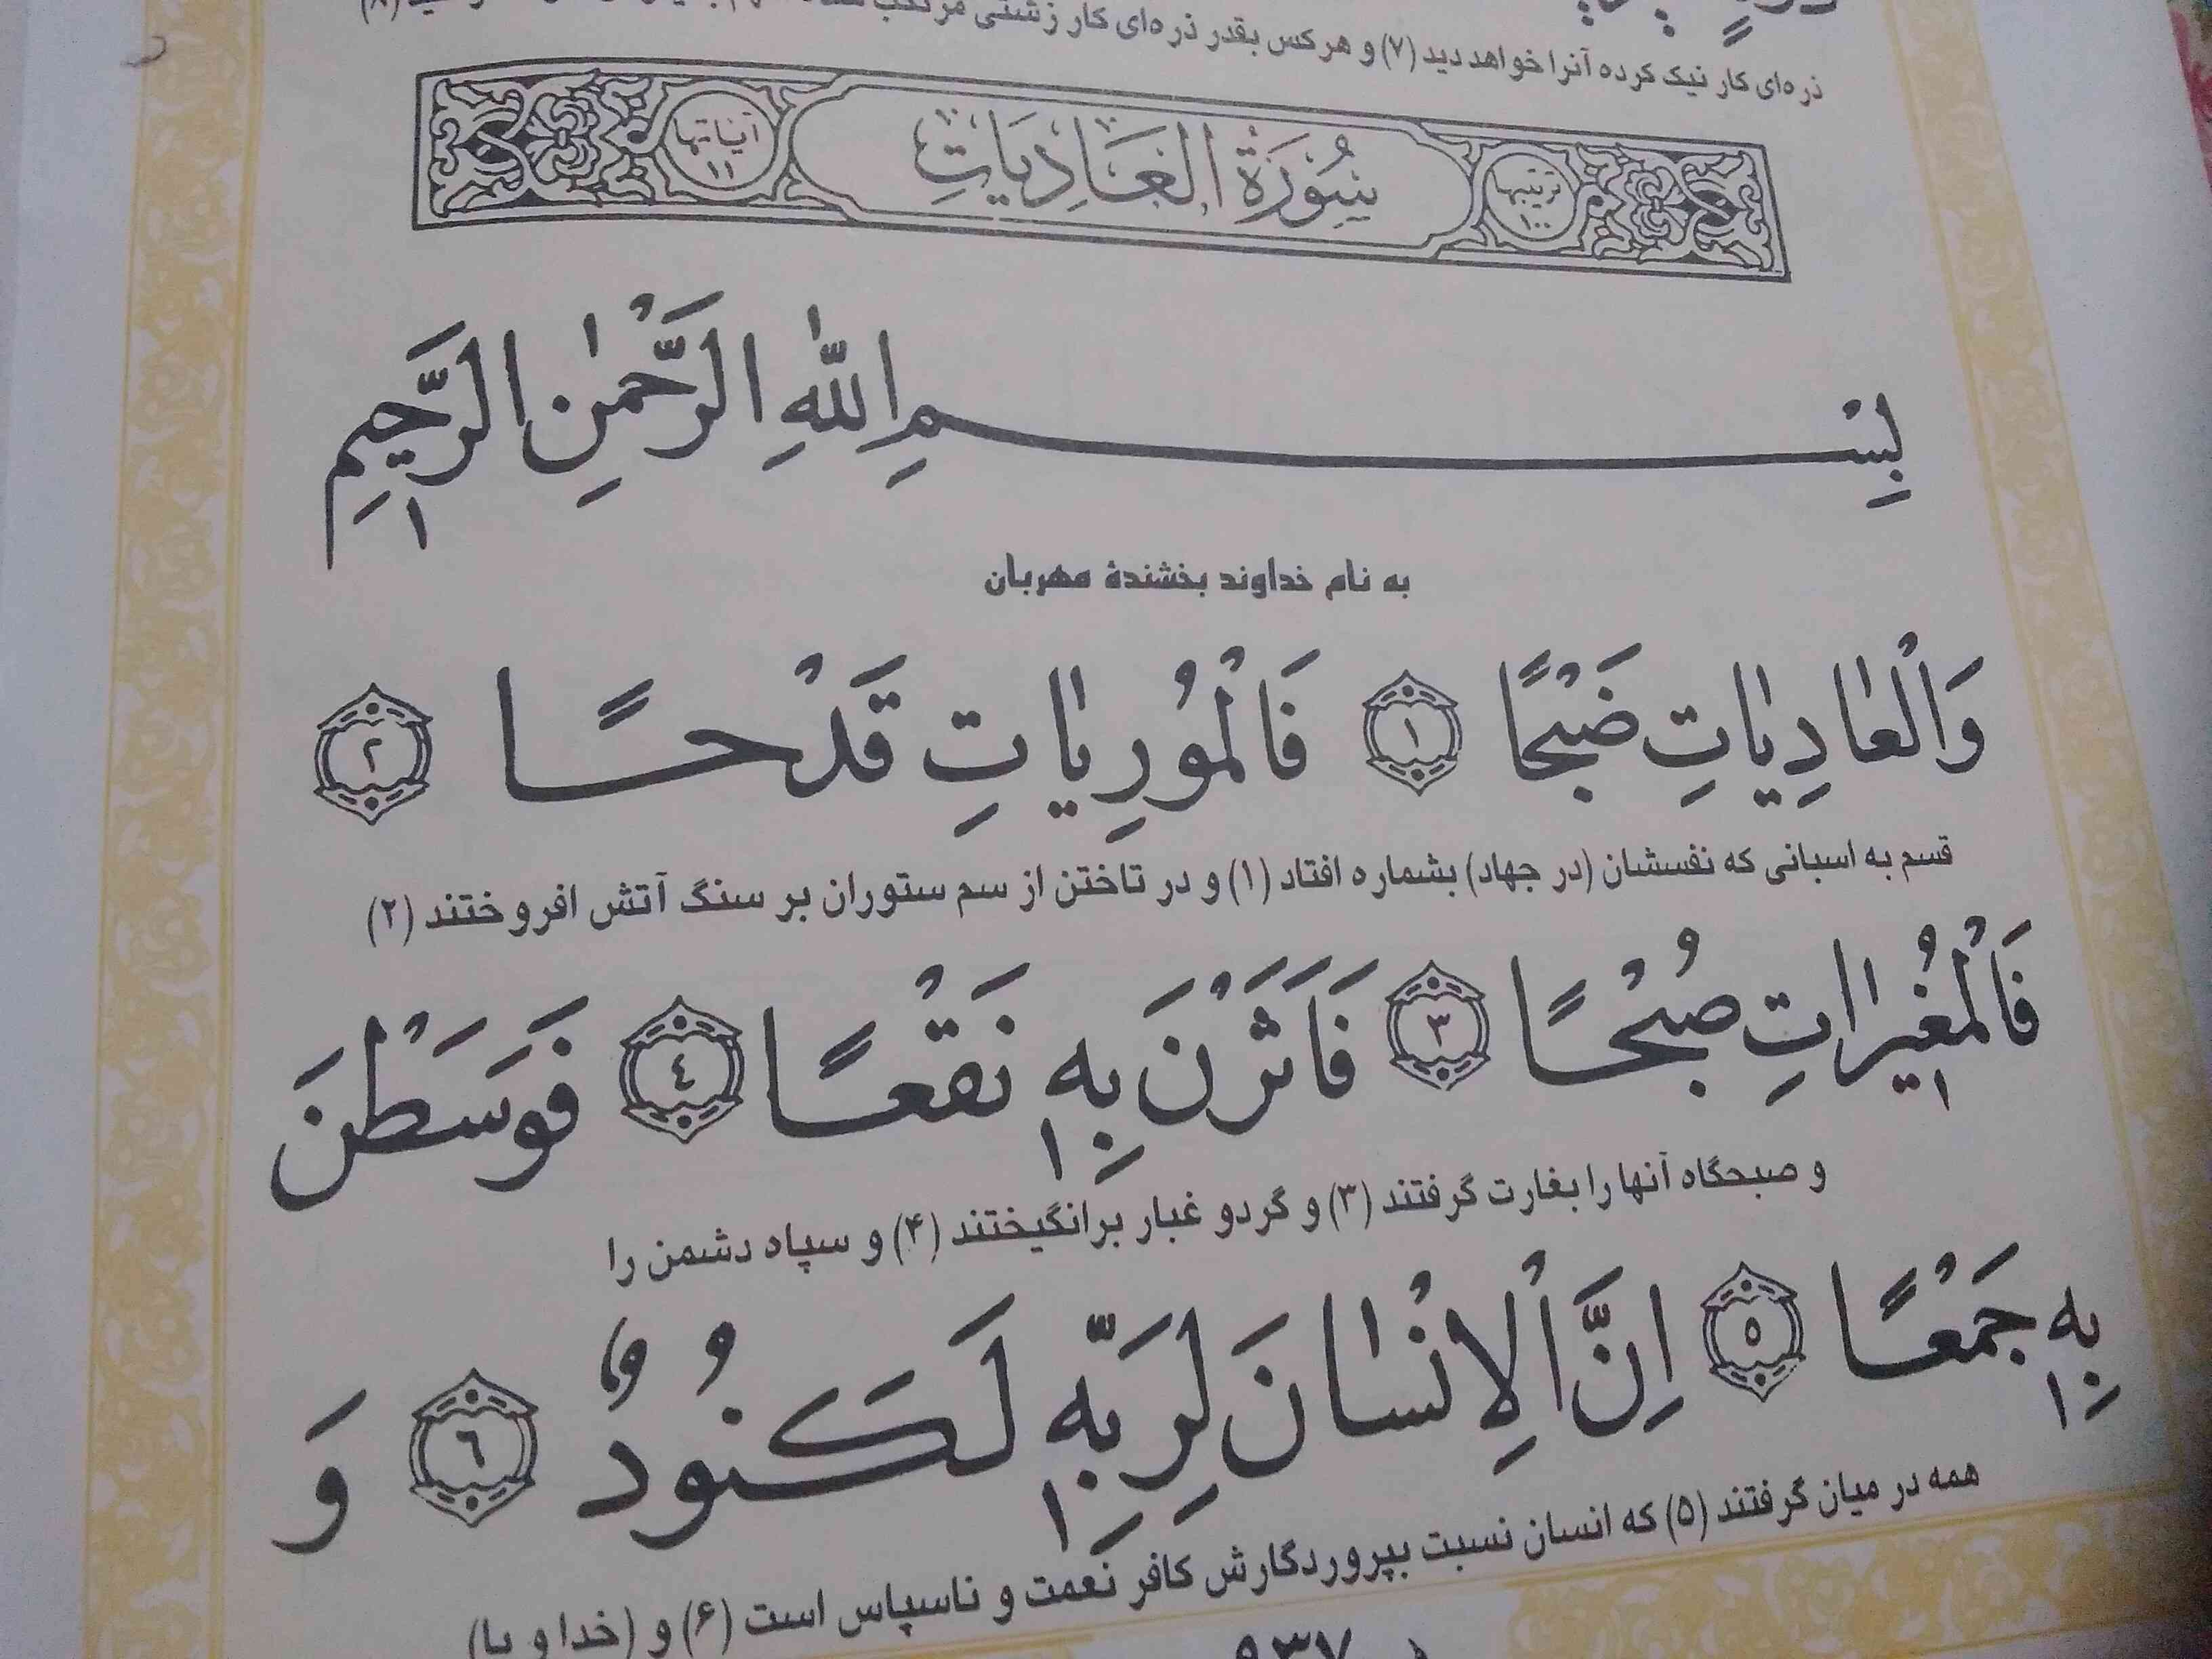 ذره‌ای کار نیک کرده آنرا خواهد دید (۷) و هر کس بقدر ذره‌ای کار زشتی مرتکب شده
ترتیبها ۱۰۰ سُورَةُ العَادِيَاتِ آیاتها ۱۱
بِسْمِ اللّٰهِ الرَّحْمٰنِ الرَّحِيمِ
به نام خداوند بخشندهٔ مهربان
وَالْعٰادِيٰاتِ ضَبْحًا ١ فَالْمُورِيٰاتِ قَدْحًا ٢
قسم به اسبانی که نفسشان (در جهاد) بشماره افتاد (۱) و در تاختن از سم ستوران بر سنگ آتش افروختند (۲)
فَالْمُغيرٰاتِ صُبْحًا ٣ فَاَثَرْنَ بِهِ نَقْعًا ٤ فَوَسَطْنَ
و صبحگاه آنها را بغارت گرفتند (۳) و گرد و غبار برانگیختند (۴) و سپاه دشمن را
بِهِ جَمْعًا ٥ اِنَّ الْاِنْسٰانَ لِرَبِّهِ لَكَنُودٌ ٦ وَ
همه در میان گرفتند (۵) که انسان نسبت بپروردگارش کافر نعمت و ناسپاس است (۶) و (خدا و یا)
۹۳۷